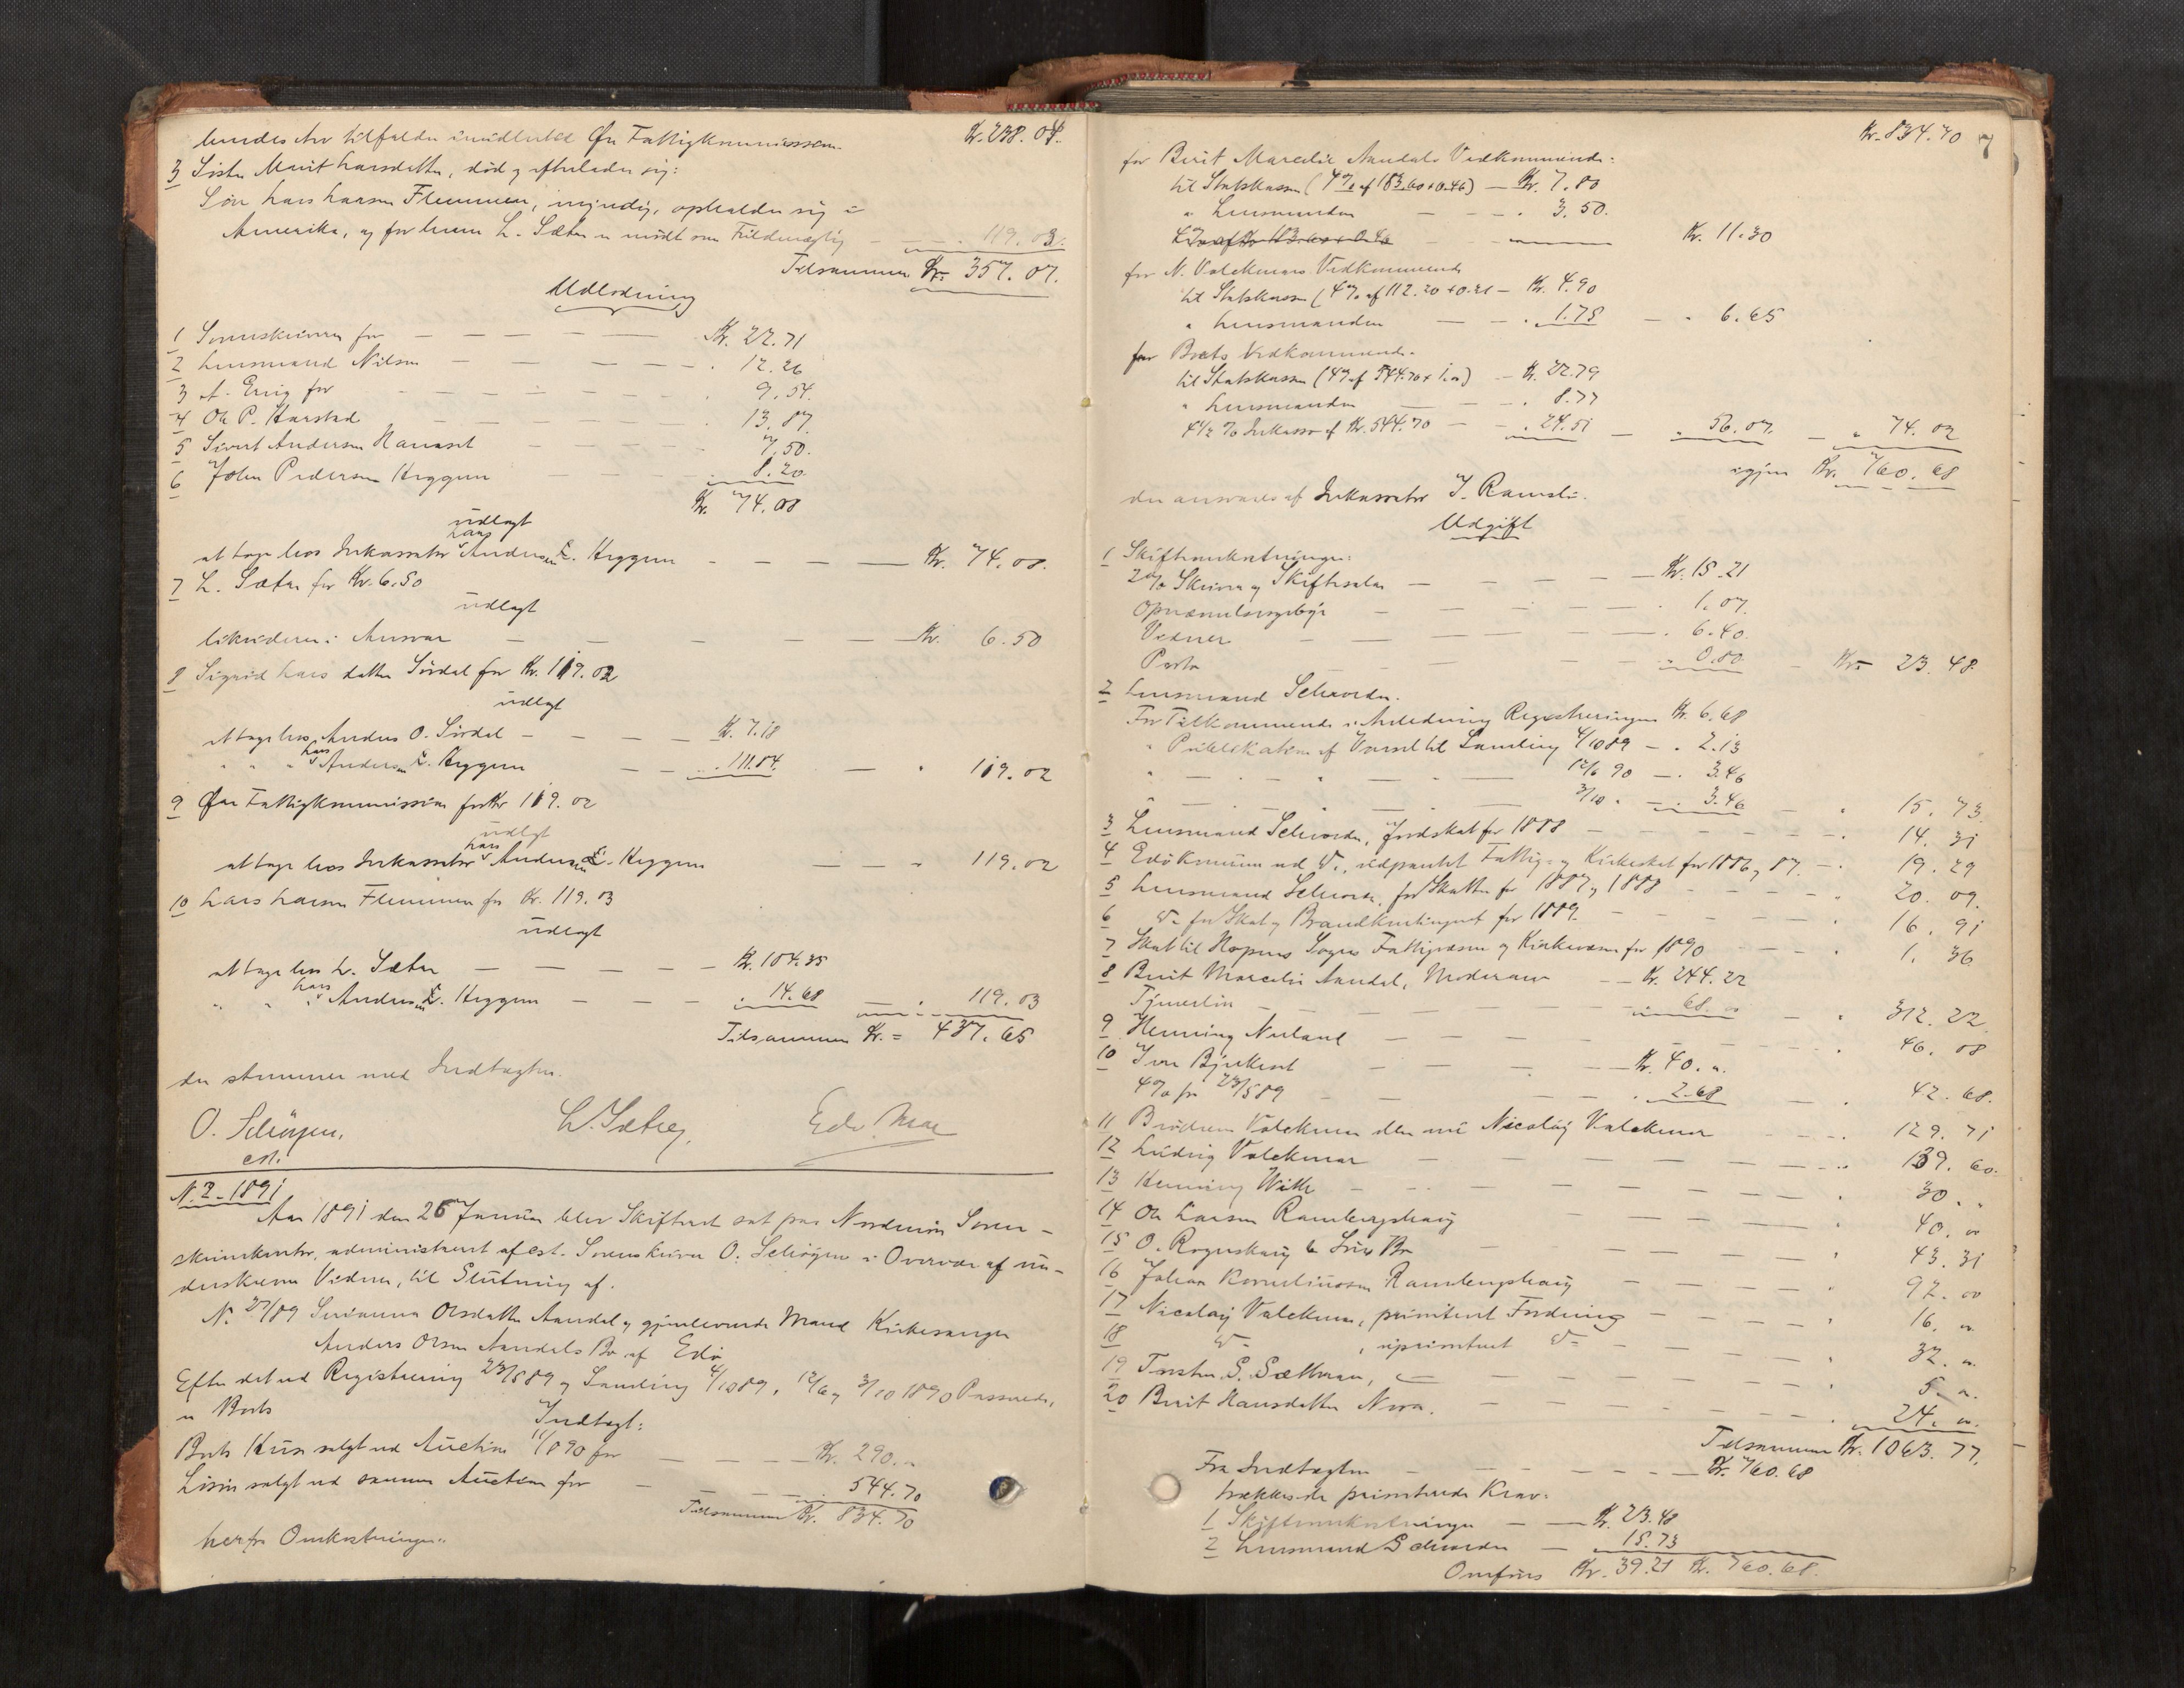 hendes Arv tilfalder imidlertid Øre Fattigkommission Kr. 238.04.
3 Søster Marit Larsdatter, død og efterlader sig:
Søn Lars Larsen Flemmen, myndig, opholder sig i
Amerika, og for ham L. Sæter er mødt som Fuldmægtig — — 119.03.
Tilsammen Kr. 357.07.
Udlodning
1 Sorenskriveren for — — — — Kr. 22.71
2 Lensmand Nilsen — — — — 12.26
3 A. Enig for — — — — 9.54.
4 Ole P. Harstad — — — 13.87
5 Sivert Andersen Hanaset — — — 7.50.
6 John Pedersen Heggem — — — 8.20
Kr. 74.08
udlagt
at tage hos Inkassator Lars Andersen Heggem — — — — Kr. 74.08.
7 L. Sæter for Kr. 6.50
udlagt
likviderer i Ansvar — — — — — Kr. 6.50
8 Sigrid Lars datter Sørdal for Kr. 119.02
udlagt
at tage hos Anders O. Sørdal — — — — Kr. 7.18
" " " Lars Andersen Heggem — — 111.84. — " 119.02
9 Øre Fattigkommission for Kr 119.02
udlagt
at tage hos Inkassator Lars Andersen Heggem — — " 119.02
10 Lars Larsen Flemmen for Kr. 119.03
udlagt
at tage hos L. Sæter — — — — Kr. 104.35
" " " Lars Andersen Heggem — — — 14.68 — . 119.03
Tilsammen Kr. = 437.65
der stemmer med Indtægten.
O. Schrøgen, L. Sæter, Edv. Moe
cst.
N. 2 - 1891
Aar 1891 den 26 Januar blev Skifteret sat paa Nordmør Soren-
skriverkontor, administreret af cst. Sorenskriver O. Schiøgen i Overvær af un-
derskrevne Vidner, til Slutning af.
N. 27/89 Susanna Olsdatter Aandal og gjenlevende Mand Kirkesanger
Anders Olsen Aandals Bo af Edø
Efter det ved Registrering 23/5 89 og Samling 4/10 89, 12/6 og 3/10 1890 Passerede,
er Boets
Indtægt:
Boets Huse solgt ved Auction 11/8 90 for — — — Kr. 290. "
Løsøre solgt ved samme Auction for — — — 544.70
Tilsammen Kr. 834.70
herfra Omkostninger:
Kr. 834.70 7
for Berit Marcelie Aandals Vedkommende:
til Statskassen (4% af 183.60 + 0.46) — Kr. 7.80
" Lensmanden — — — . 3.50.
Kr. 11.30
for N. Volckmars Vedkommende
til Statskassen (4% af 112.20 + 0.21 — Kr. 4.90
" Lensmanden — — . 1.75 — " 6.65
for Boets Vedkommende.
til Statskassen (4% af 544.70 + 1.") — Kr. 22.79
" Lensmanden — — . 8.77
4 1/2 % Inkasso af Kr. 544.70 — — . 24.51 — " 56.07. — " 74.02
igjen Kr. 760.68
der ansvares af Inkassator J. Ramsli.
Udgift
1 Skifteomkostninger:
2% Skriver og Skiftesalær — — — — Kr. 15.21
Opnævnelsesgebyr — — — — . 1.07.
Vidner — — — — . 6.40.
Porto — — — — " 0.80. — Kr 23.48
2 Lensmand Schrøder.
For Tilkommende i Anledning Registreringen Kr. 6.68
" Publikation af Varsel til Samling 4/10 89 — . 2.13
" — " — " — " — 12/6 90 — . 3.46
" — " — — — 3/10 " — . 3.46 — " 15.73
3 Lensmand Schrøder, Jordskat for 1888 — — — — 14.31
4 Edø Kommune ved do, udpantet Fattig- og Kirkeskat for 1886 og 87. — . 19.29
5 Lensmand Schrøder, for Skatter for 1887 og 1888 — — — " 20.09.
6 do for Skat og Brandkontingent for 1889 — — — — 16.91
7 Skat til Hopens Sogns Fattigvæsen og Kirkevæsen for 1890 — — " 1.36
8 Berit Marcelie Aandal, Mødrearv — — Kr. 244.22
Tjenerløn — — — — 68.00 — " 312.22
9 Henning Nerland — — — — — . 46.08
10 Iver Bjerkeset — — — — Kr. 40. "
4% fra 23/5 89 — — — . 2.68 — . 42.68.
11 Brødrene Volckmar eller nu Nicolay Volckmar — — — 129.71
12 Ludvig Volckmar — — — — — 139.60.
13 Henning Witte — — — — — . 30. "
14 Ole Larsen Ramberghaug — — — — " 40.00
15 O. Rognskaug & Søns Bo — — — — " 43.31
16 Johan Korneliussen Ramberghaug — — — " 92.00
17 Nicolay Volckmar, prioriteret Fordring — — — " 16. "
18 do , uprioriteret do — — — " 32. "
19 Torsten S. Sættran, — — — — " 5 ".
20 Berit Hansdatter Nora. — — — — . 24. ".
Tilsammen Kr. 1063.77.
Fra Indtægten — — — — — Kr. 760.68
trækkes de prioriterede Krav:
1 Skifteomkostninger — — Kr. 23.48
2 Lensmand Schrøder — 15.73
Omføres Kr. 39.21 Kr. 760.68.